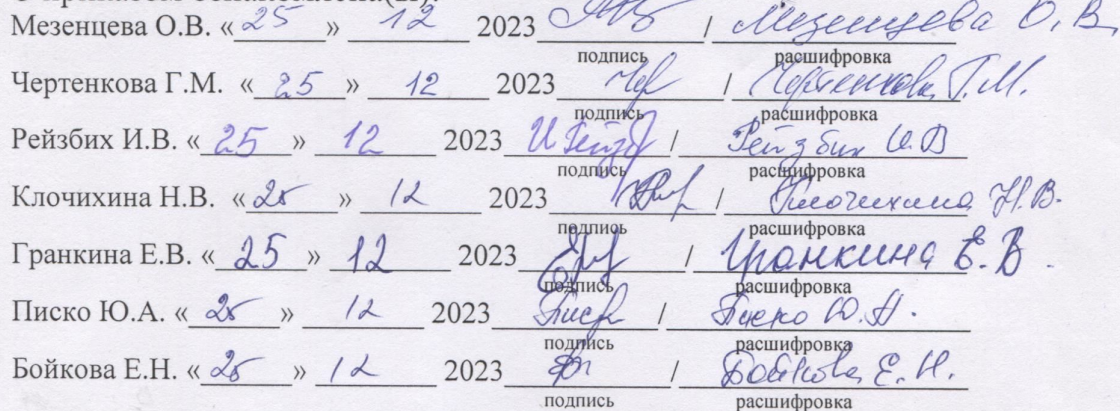 Мезенцева О.В. «25» 12 2023 / Мезенцева О.В.
подпись расшифровка
Чертенкова Г.М. «25» 12 2023 Чер / Чертенкова Г.М.
подпись расшифровка
Рейзбих И.В. «25» 12 2023 И Рейзб / Рейзбих И.В
подпись расшифровка
Клочихина Н.В. «25» 12 2023 / Клочихина Н.В.
подпись расшифровка
Гранкина Е.В. «25» 12 2023 / Гранкина Е.В.
подпись расшифровка
Писко Ю.А. «25» 12 2023 / Писко Ю.А.
подпись расшифровка
Бойкова Е.Н. «25» 12 2023 / Бойкова Е.Н.
подпись расшифровка